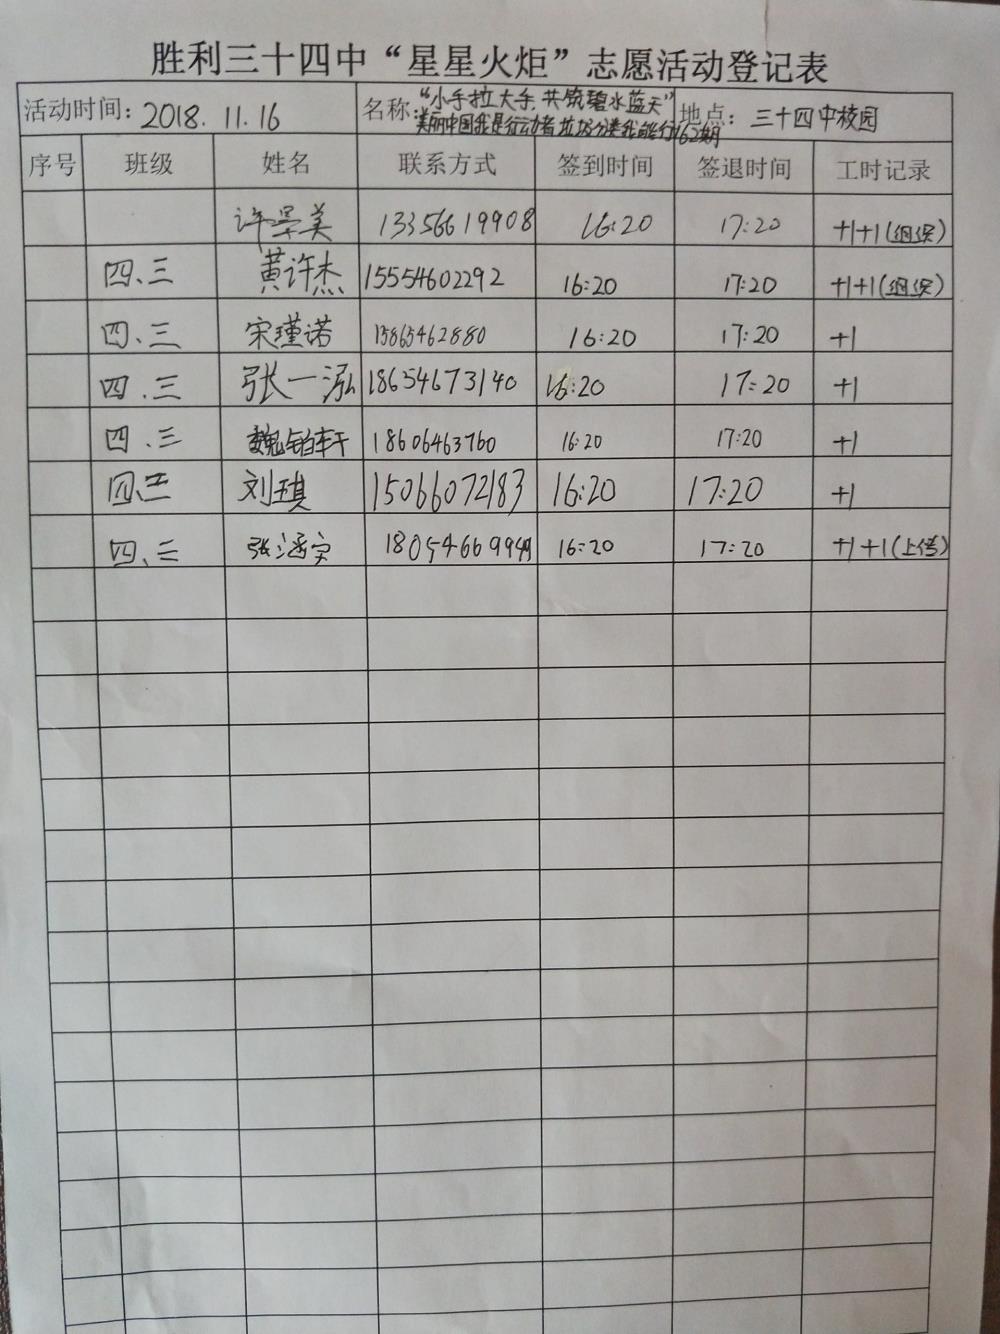 胜利三十四中“星星火炬”志愿活动登记表
活动时间：2018.11.16 名称：“小手拉大手，共筑碧水蓝天” 地点：三十四中校园
美丽中国我是行动者 垃圾分类我能行162期
序号 班级 姓名 联系方式 签到时间 签退时间 工时记录
许景美 13356619908 16:20 17:20 +1+1(组织)
四.三 黄许杰 15554602292 16:20 17:20 +1+1(组织)
四.三 宋瑾诺 15865462880 16:20 17:20 +1
四.三 张一泓 18654673140 16:20 17:20 +1
四.三 魏铂轩 18606463760 16:20 17:20 +1
四.三 刘琪 15066072183 16:20 17:20 +1
四.三 张涵 16:20 17:20 +1+1(上传)